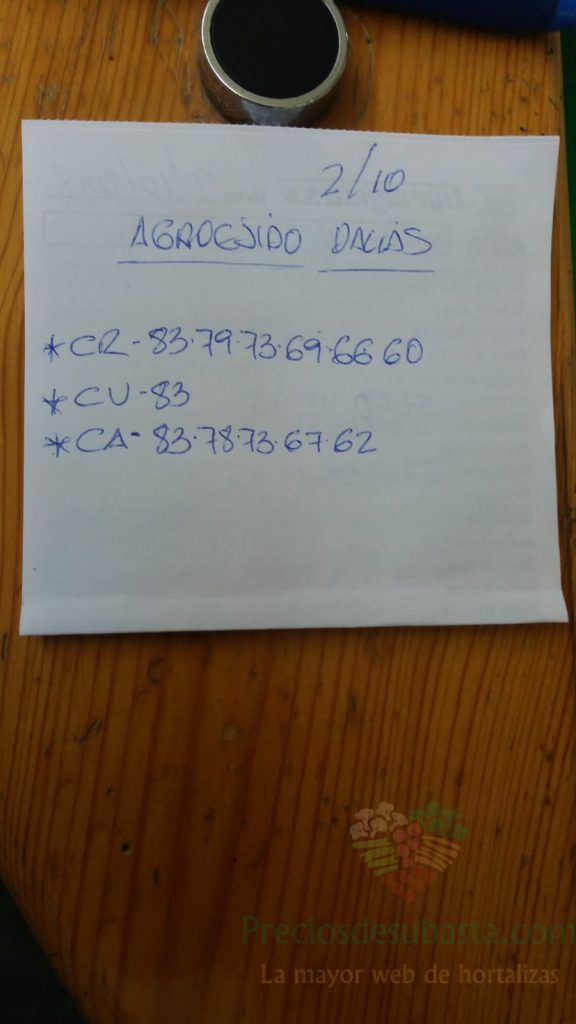 2/10
AGROEJIDO DALIAS
*CR-83.79.73.69.66 60
*CU-83
*CA-83.78.73.67.62
Preciosdesubasta.com
La mayor web de hortalizas